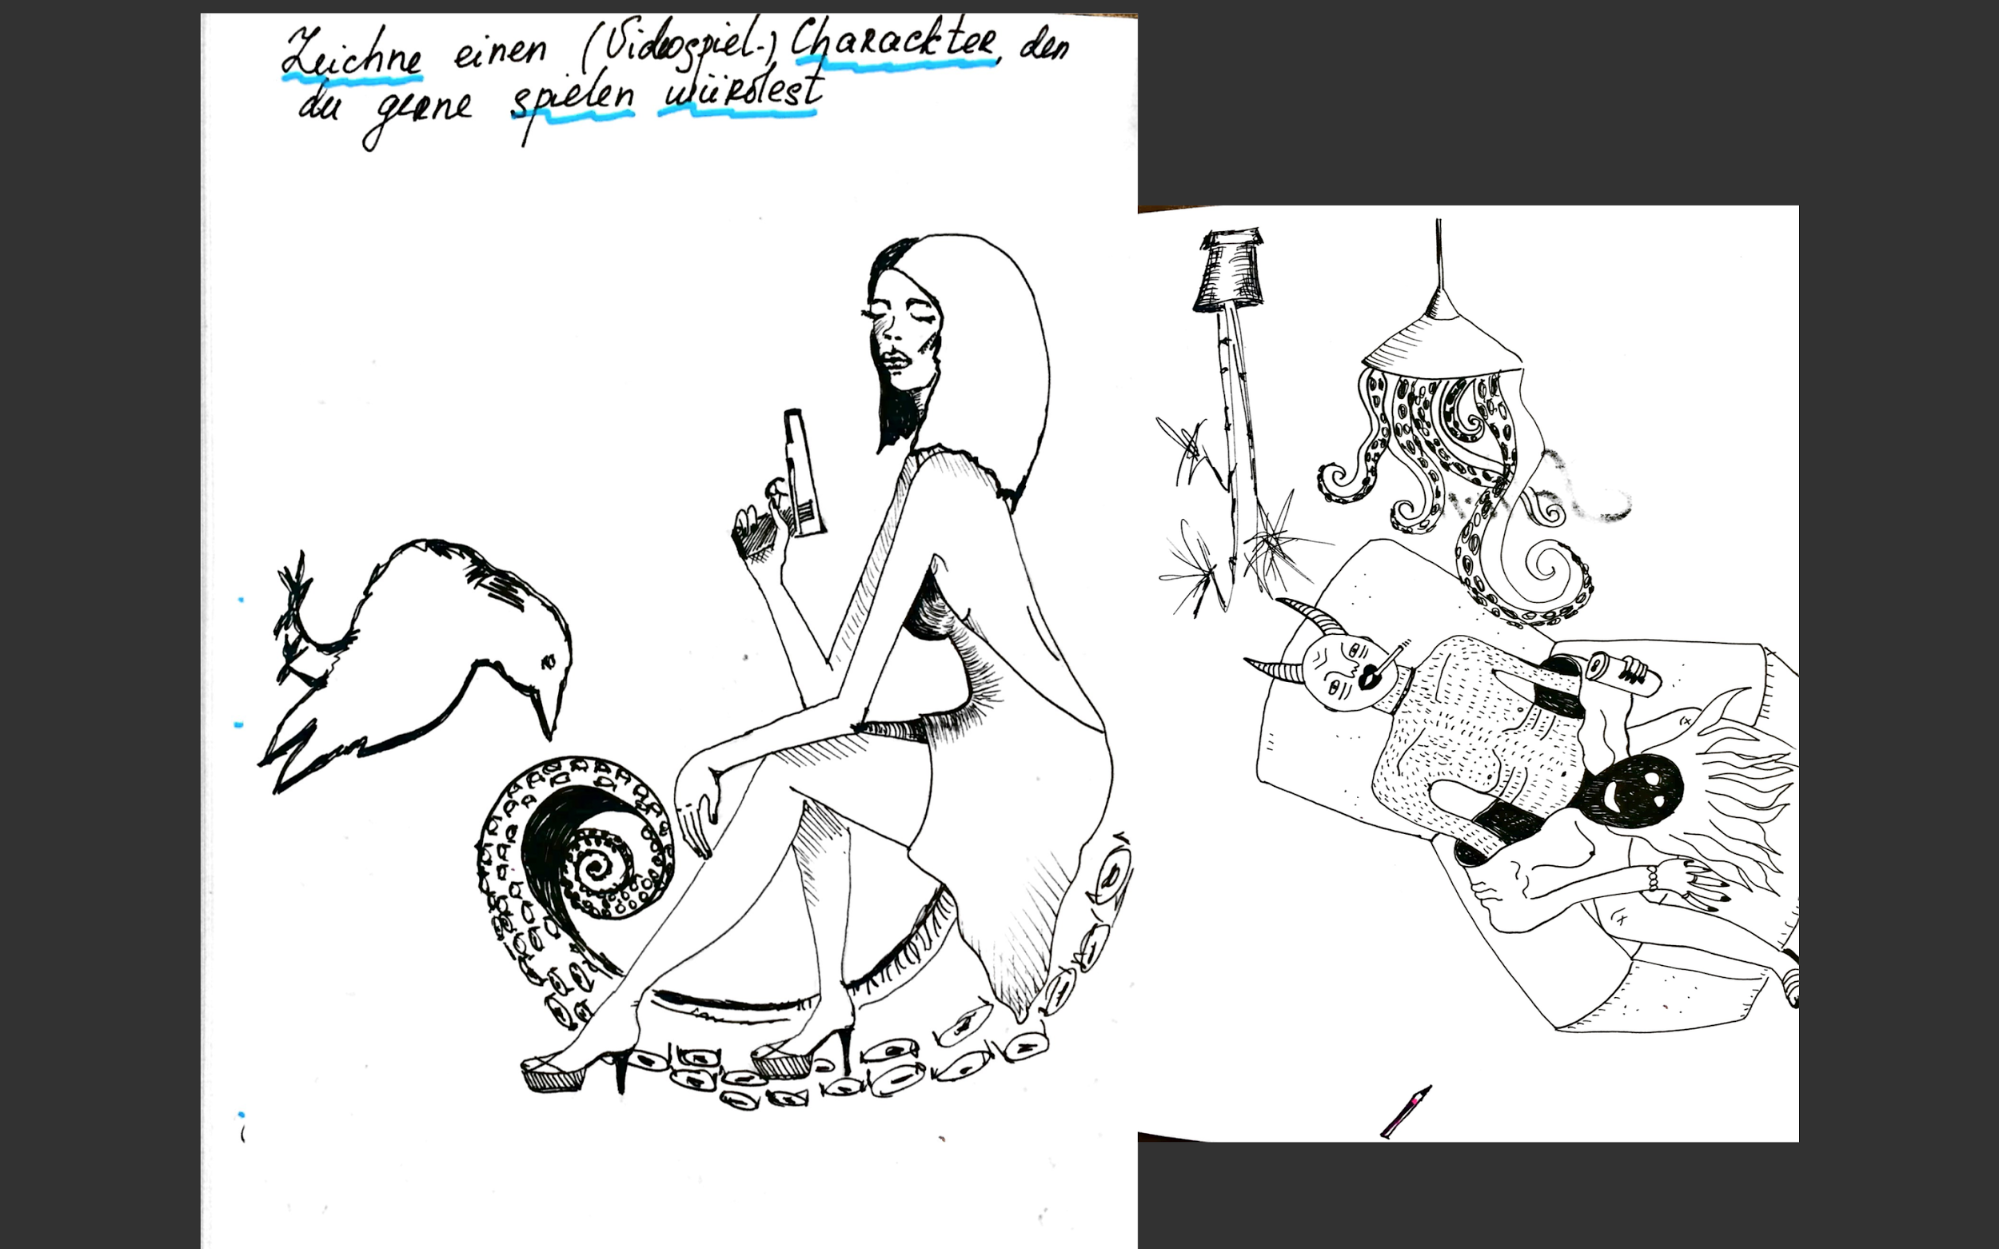 Zeichne einen (Videospiel-) Charackter, den
du gerne spielen würdest